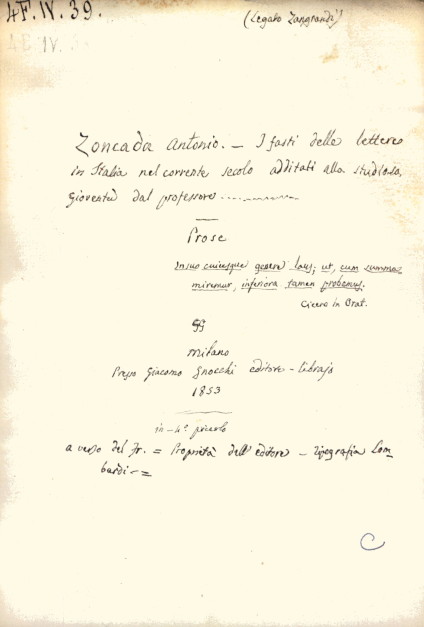 4F. IV. 39.
(Legato Zangrandi)
4F. IV. 39
Zoncada Antonio. — I fasti delle lettere
in Italia nel corrente secolo additati alla studiosa
gioventù dal professore ..............
Prose
In suo cuiusque genere laus; ut, cum summos
miremur, inferiora tamen probemus.
Cicero in Orat.
Milano
Presso Giacomo Gnocchi editore-librajo
1853
in-4.° piccolo
a verso del fr. = Proprietà dell'editore — Tipografia Lom_
bardi — =
C